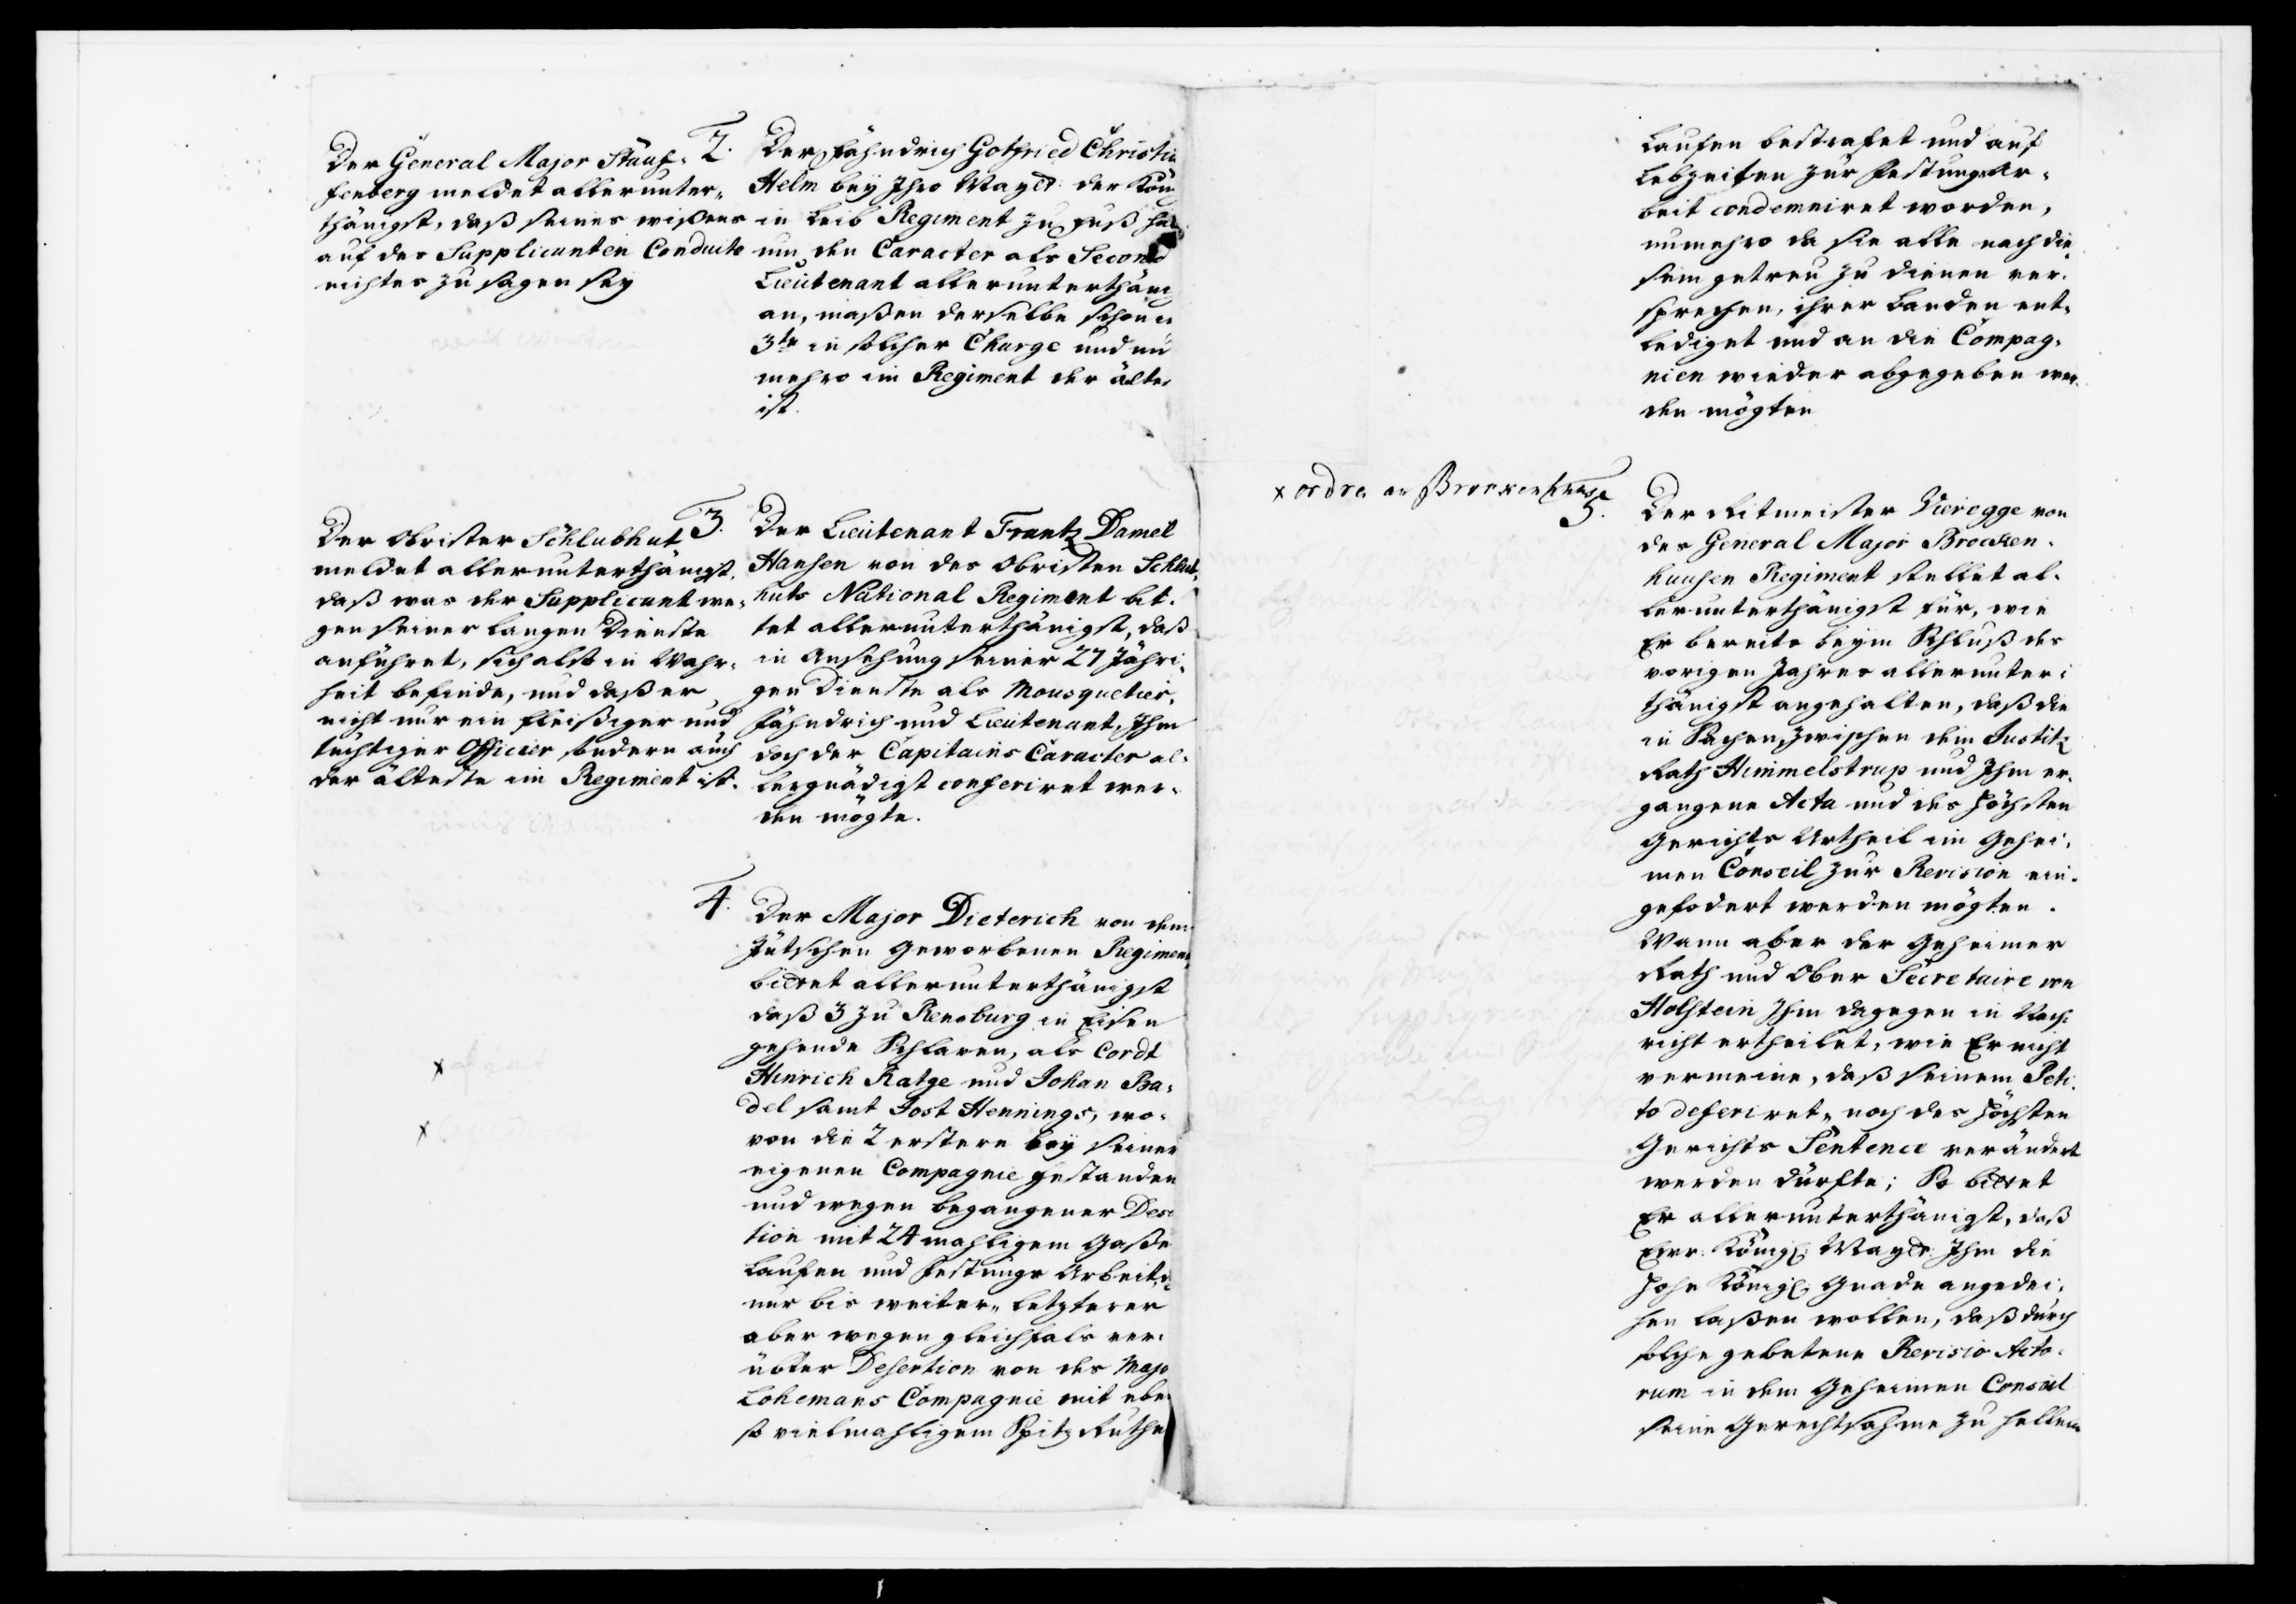 Der General Major Stauf-
fenberg meldet allerunter-
thänigst, daß seines wißens
auf des Supplicanten Conduite
nichtes zu sagen sey
2.
Der Fähndrich Gotfried Christi
Helm bey Ihro Mayt: der Kön
in Leib Regiment zu Fuß hä
um den Caracter als Second
Lieutenant allerunterthänig
an, maßen derselbe schon
3te in solcher Charge und nu
mehro im Regiment der älte
ist.
Der Obrister Schlubhut
meldet allerunterthänigst,
daß was der Supplicant we-
gen seiner langen Dienste
anführet, sich also in Wahr-
heit befinde, und daß er
nicht nur ein fleißiger und
tüchtiger Officier sondern auch
der älteste im Regiment ist.
3.
Der Lieutenant Frantz Daniel
Hansen von des Obristen Schlub-
huts National Regiment bit-
tet allerunterthänigst, daß
in Ansehung seiner 27 Jähri-
gen Dienste als Mousquetier,
Fähndrich und Lieutenant, Ihm
doch der Capitains Caracter al-
lergnädigst conferiret wer-
den mögte.
4.
Der Major Dieterich von dem
Jütschen Geworbenen Regiment
bittet allerunterthänigst
daß 3 zu Rensburg in Eisen
gehende Schlaven, als Cordt
Hinrich Ratge und Johan Ba-
del samt Jost Hennings, wo-
von die 2 erstere bey seiner
eigenen Compagnie gestanden
und wegen begangener Deser
tion mit 24 mahligem Gaße
Laufen und Festungs Arbeit,
nur bis weiter, letzterer
aber wegen gleichfals ver-
übter Desertion von des Majo
Lohemans Compagnie mit eben
so vielmahligem Spitz Ruthe
x
x
Laufen bestrafet und auf
Lebzeiten zur Festungs Ar-
beit condemniret worden,
numehro da sie alle nach die-
sem getreu zu dienen ver-
sprechen, ihrer Banden ent-
lediget und an die Compag-
nien wieder abgegeben wer-
den mögten
x ordre an Brockenhuus
5.
Der Ritmeister Vieregge von
des General Major Brocken-
huusen Regiment stellet al-
lerunterthänigst für, wie
Er bereits beym Schluß des
vorigen Jahres allerunter-
thänigst angehalten, daß die
in Sachen zwischen dem Justitz
Rath Himmelstrup und Ihm er-
gangene Acta und des Höchsten
Gerichts Urtheil im Gehei-
men Conseil zur Revision ein-
gefodert werden mögten.
Wann aber der Geheimer
Rath und Ober Secretaire von
Holstein Ihm dagegen in Nach-
richt ertheilet, wie Er nicht
vermeine, daß seinem Peti-
to deferiret, noch des Höchsten
Gerichts Sentence verändert
werden dürfte; So bittet
Er allerunterthänigst, daß
Ewr: Königl: Mayt: Ihm die
Hohe Königl: Gnade angedei-
hen laßen wollen, daß durch
solche gebetene Revisio Acto-
rum in dem Geheimen Conseil
seine Gerechtsahme zu hellem